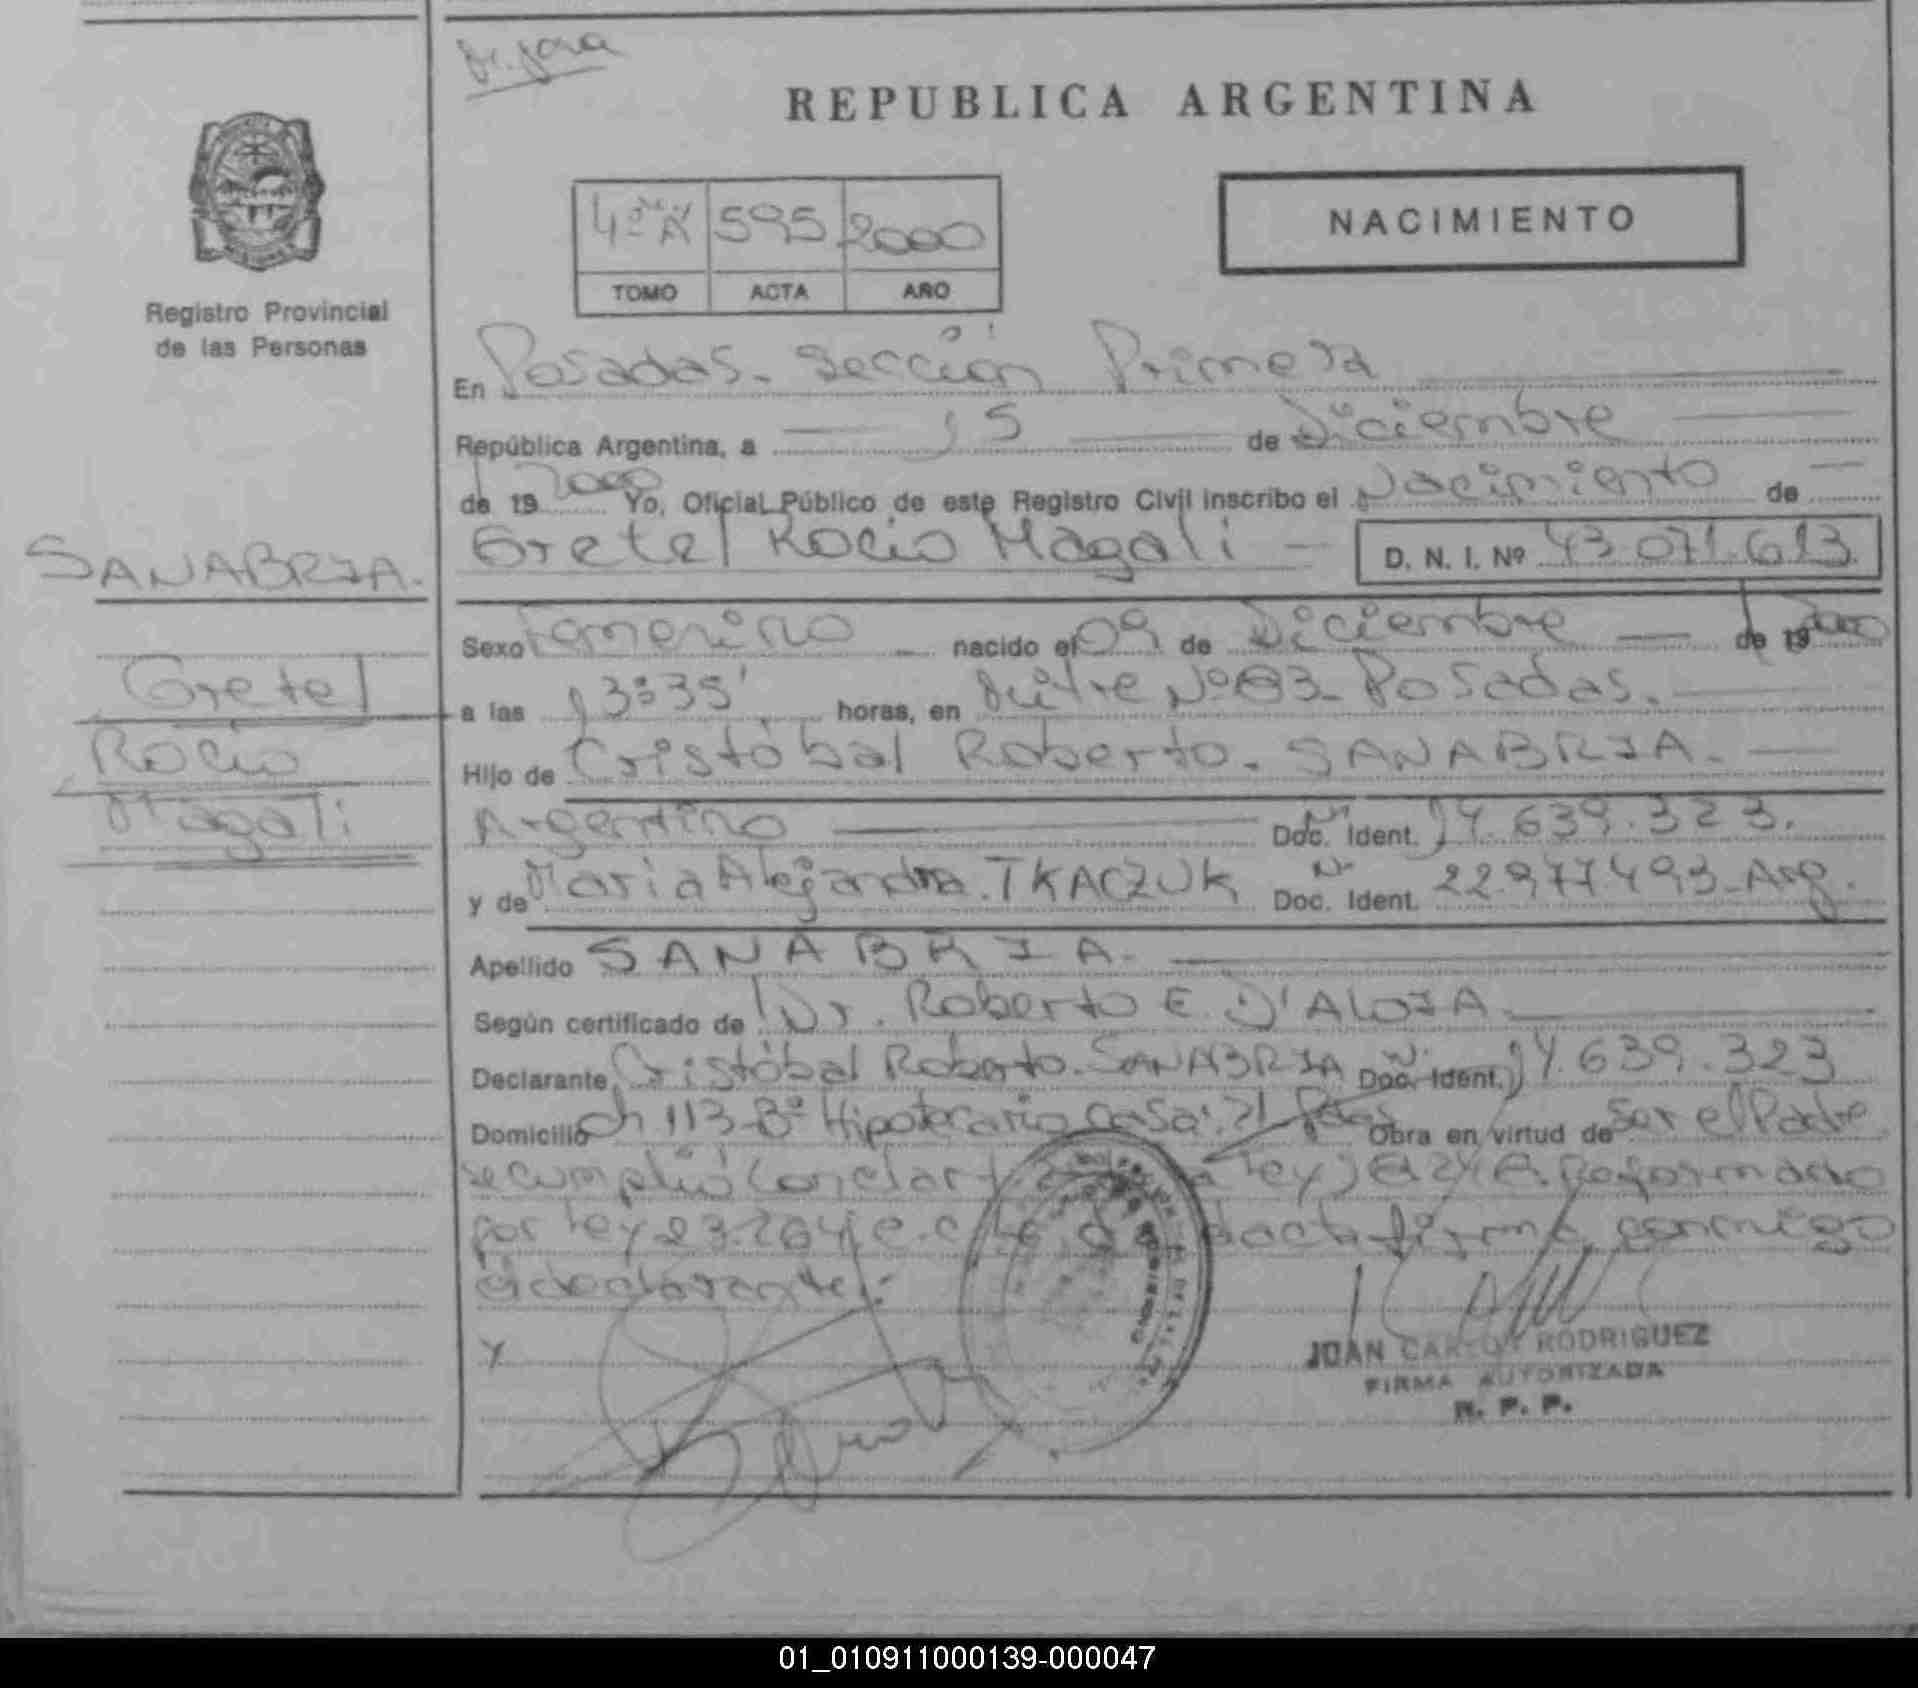 REPUBLICA ARGENTINA
4º "A" 595 2000
TOMO ACTA AÑO
NACIMIENTO
Registro Provincial
de las Personas
En Posadas. Sección Primera
República Argentina, a 15 de Diciembre
de 19 2000 Yo, Oficial Público de este Registro Civil inscribo el Nacimiento de
Gretel Rocio Magali D. N. I. Nº 43.071.613
SANABRIA.
Gretel
Rocio
Magali
Sexo Femenino nacido el 09 de Diciembre de 19 2000
a las 13:35' horas, en Mitre Nº 83- Posadas.
Hijo de Cristóbal Roberto. SANABRIA.
Argentino Doc. Ident. 14.639.323.
y de Maria Alejandra. TKACZUK Doc. Ident. 22.977.493-Arg.
Apellido SANABRIA.
Según certificado de Dr. Roberto E. D'ALOIA
Declarante Cristóbal Roberto. SANABRIA Doc. Ident. 14.639.323
Domicilio Ch 113-Bº Hipotecario Casa: 21 Pdas Obra en virtud de Ser el Padre
se cumplió con el art. Ley Reformado
por Ley 23.264 acta firma conmigo
el declarante:
JUAN CARLOS RODRIGUEZ
FIRMA AUTORIZADA
R. P. P.
01_010911000139-000047